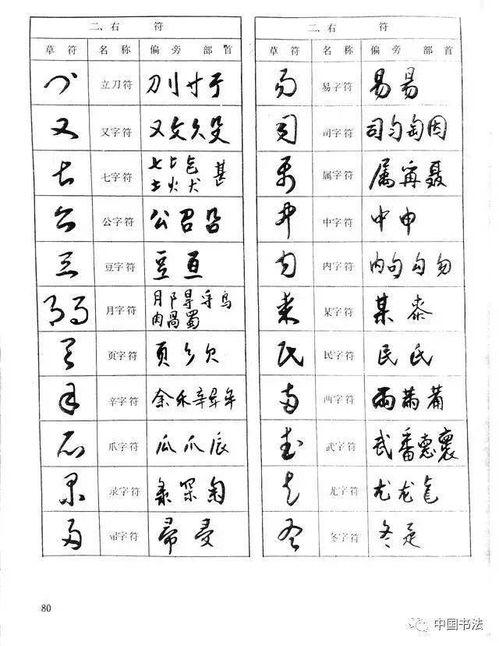 二、右符
草符 名称 偏旁部首
立刀符 刀刂寸于
又字符 又攵欠殳
七字符 七
土火犬 甚
公字符 公召谷
豆字符 豆亘
月字符 月阝寻寽鸟
肉咼蜀
页字符 页彡欠
辛字符 余禾辛
爪字符 瓜爪辰
录字符 录罙匋
帚字符 帚
二、右符
草符 名称 偏旁部首
易字符 易昜
司字符 司匀匋因
属字符 属甯聂
中字符 中申
内字符 内句勾勿
某字符 某泰
民字符 民氏
两字符 两
武字符 武番惠襄
尤字符 尤龙
冬字符 冬
80
中国书法